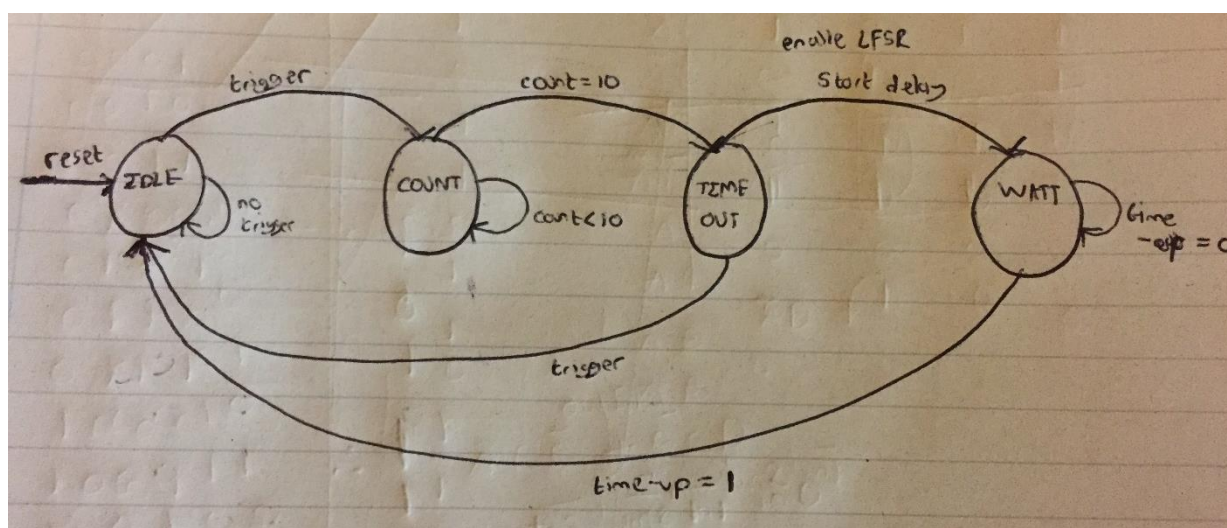 enable LFSR
trigger
count=10
Start delay
reset
IDLE
no
trigger
COUNT
count<10
TIME
OUT
WAIT
time
-up = 0
trigger
time-up = 1